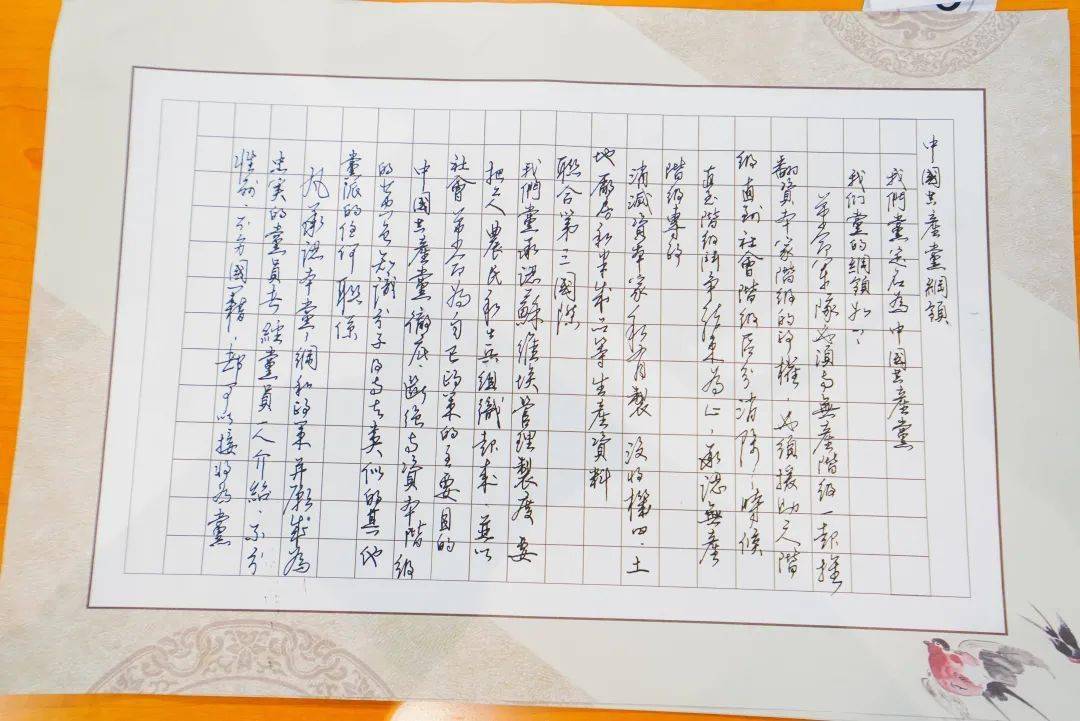 中國共產黨綱領
我們黨定名為中國共產黨
我们黨的綱領如下:
革命軍隊必須与無產階級一起推
翻資本家階級的政權,必須援助工人階
級直到社會階級區分消除的時候
直至階級鬥爭结束為止,承認無產
階級專政
消滅資本家私有製 沒收機四、土
地廠房和半成品等生產資料
聯合第三國際
我們黨承認蘇維埃管理製度 要
把工人農民和士兵組織起来,並以
社會革命為自己政策的主要目的
中國共產黨徹底断绝与資本階級
的黄色知識分子及与其類似的其他
黨派的任何聯係
凡承認本黨綱和政策并願成為
忠实的黨員者經黨員一人介紹,不分
性别,不分國籍,都可以接收為黨